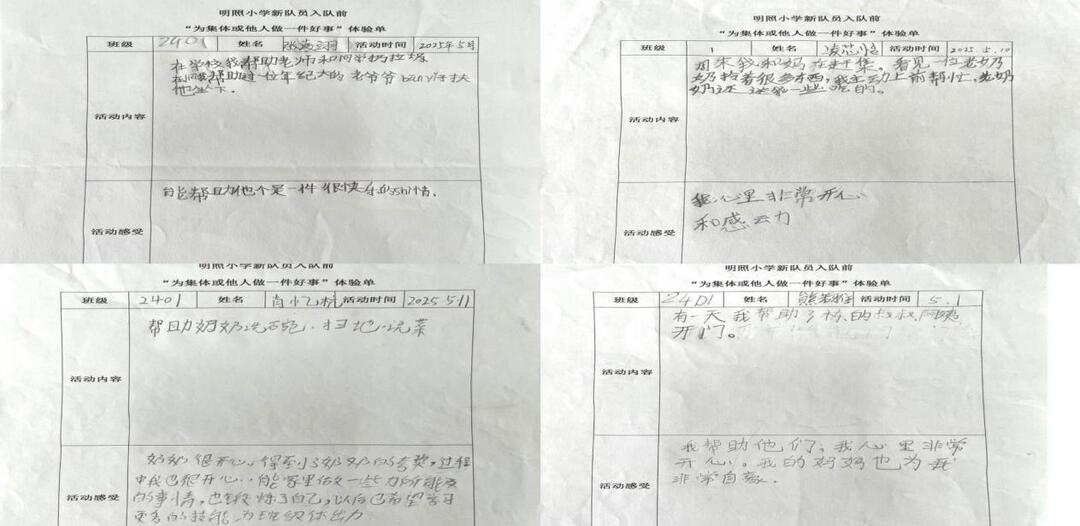 明照小学新队员入队前
“为集体或他人做一件好事”体验单
班级 2401 姓名 活动时间 2025年5月
在学校我帮助老师和同学扔垃圾
帮助过一位年纪大的老爷爷ban yi扶
他坐下.
活动内容
能帮助他个是一件很快乐的shi情.
活动感受
明照小学新队员入队前
“为集体或他人做一件好事”体验单
班级 1 姓名 凌芯 活动时间 2025.5.10
周末我和妈在赶集,看见一位老奶
奶拎着很多东西,我主动上前帮忙,老奶
奶还送我一些吃的。
活动内容
我心里非常开心
和感动
活动感受
明照小学新队员入队前
“为集体或他人做一件好事”体验单
班级 2401 姓名 肖忆杭 活动时间 2025 5.11
帮助奶奶洗碗.扫地.洗菜
活动内容
奶奶很开心,得到了奶奶的夸奖,过程
中我也很开心,能家里做一些力所能及
的事情,也锻炼了自己,以后也希望学习
更多的技能,为班级体出力
活动感受
明照小学新队员入队前
“为集体或他人做一件好事”体验单
班级 2401 姓名 熊 活动时间 5.1
有一天我帮助了栋的叔叔阿姨
开门。
活动内容
我帮助他们,我心里非常
开心。我的妈妈也为我
非常自豪.
活动感受